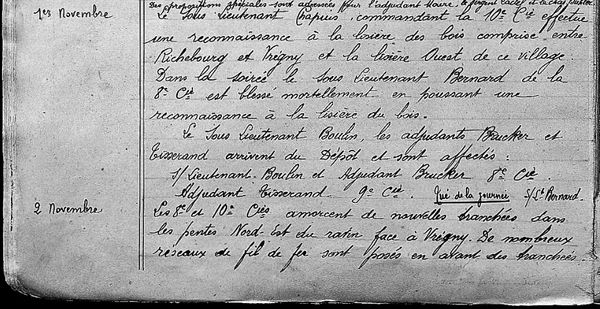 Des propositions spéciales sont adressées pour l'adjudant Maire, le sergent
1er Novembre
Le Sous Lieutenant Chapuis, commandant la 10e Cie effectue
une reconnaissance à la lisière des bois comprise entre
Richebourg et Vrégny et la lisière Ouest de ce village.
Dans la soirée le Sous Lieutenant Bernard de la
8e Cie est blessé mortellement en poussant une
reconnaissance à la lisière du bois.
Le Sous Lieutenant Boulin, les adjudants Brucker et
Tisserand arrivent du Dépôt et sont affectés :
S/Lieutenant Boulin et Adjudant Brucker 8e Cie
Adjudant Tisserand 9e Cie. Tué de la journée S/Lt Bernard.
2 Novembre
Les 8e et 10e Cies amorcent de nouvelles tranchées dans
les pentes Nord-Est du ravin face à Vrégny. De nombreux
réseaux de fil de fer sont posés en avant des tranchées.